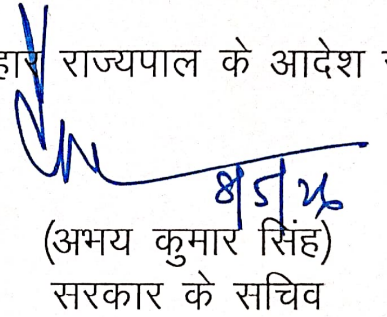 राज्यपाल के आदेश
(अभय कुमार सिंह)
सरकार के सचिव